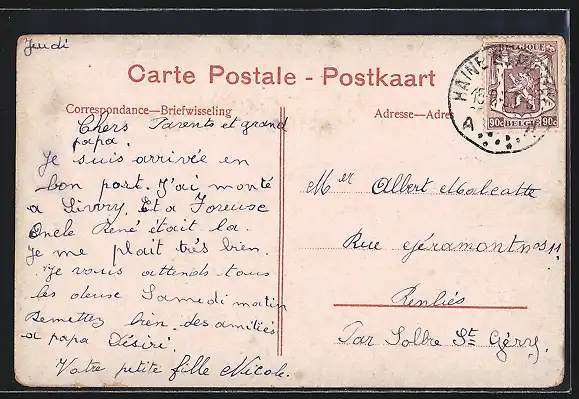 Jeudi
Carte Postale - Postkaart
Correspondance—Briefwisseling
Adresse—Adre
Chers Parents et grand
papa.
Je suis arrivée en
bon port. J'ai monté
a Livry. Et a Foreuse
Oncle René était la.
Je me plait très bien.
Je vous attends tous
les deuse Samedi matin
Remettez bien des amitiés
a papa Désiré.
Votre petite fille Nicole.
BELGIQUE
90c BELGIE 90c
HAINE
A
Mer Albert Malcatte
Rue Géramont nos 11
Renliés
Par Solbre St Géry.